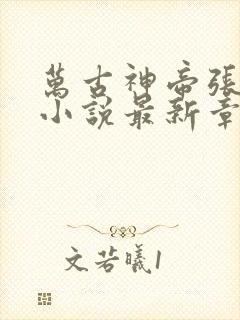 萬古神帝張
小說最新章
文若曦1